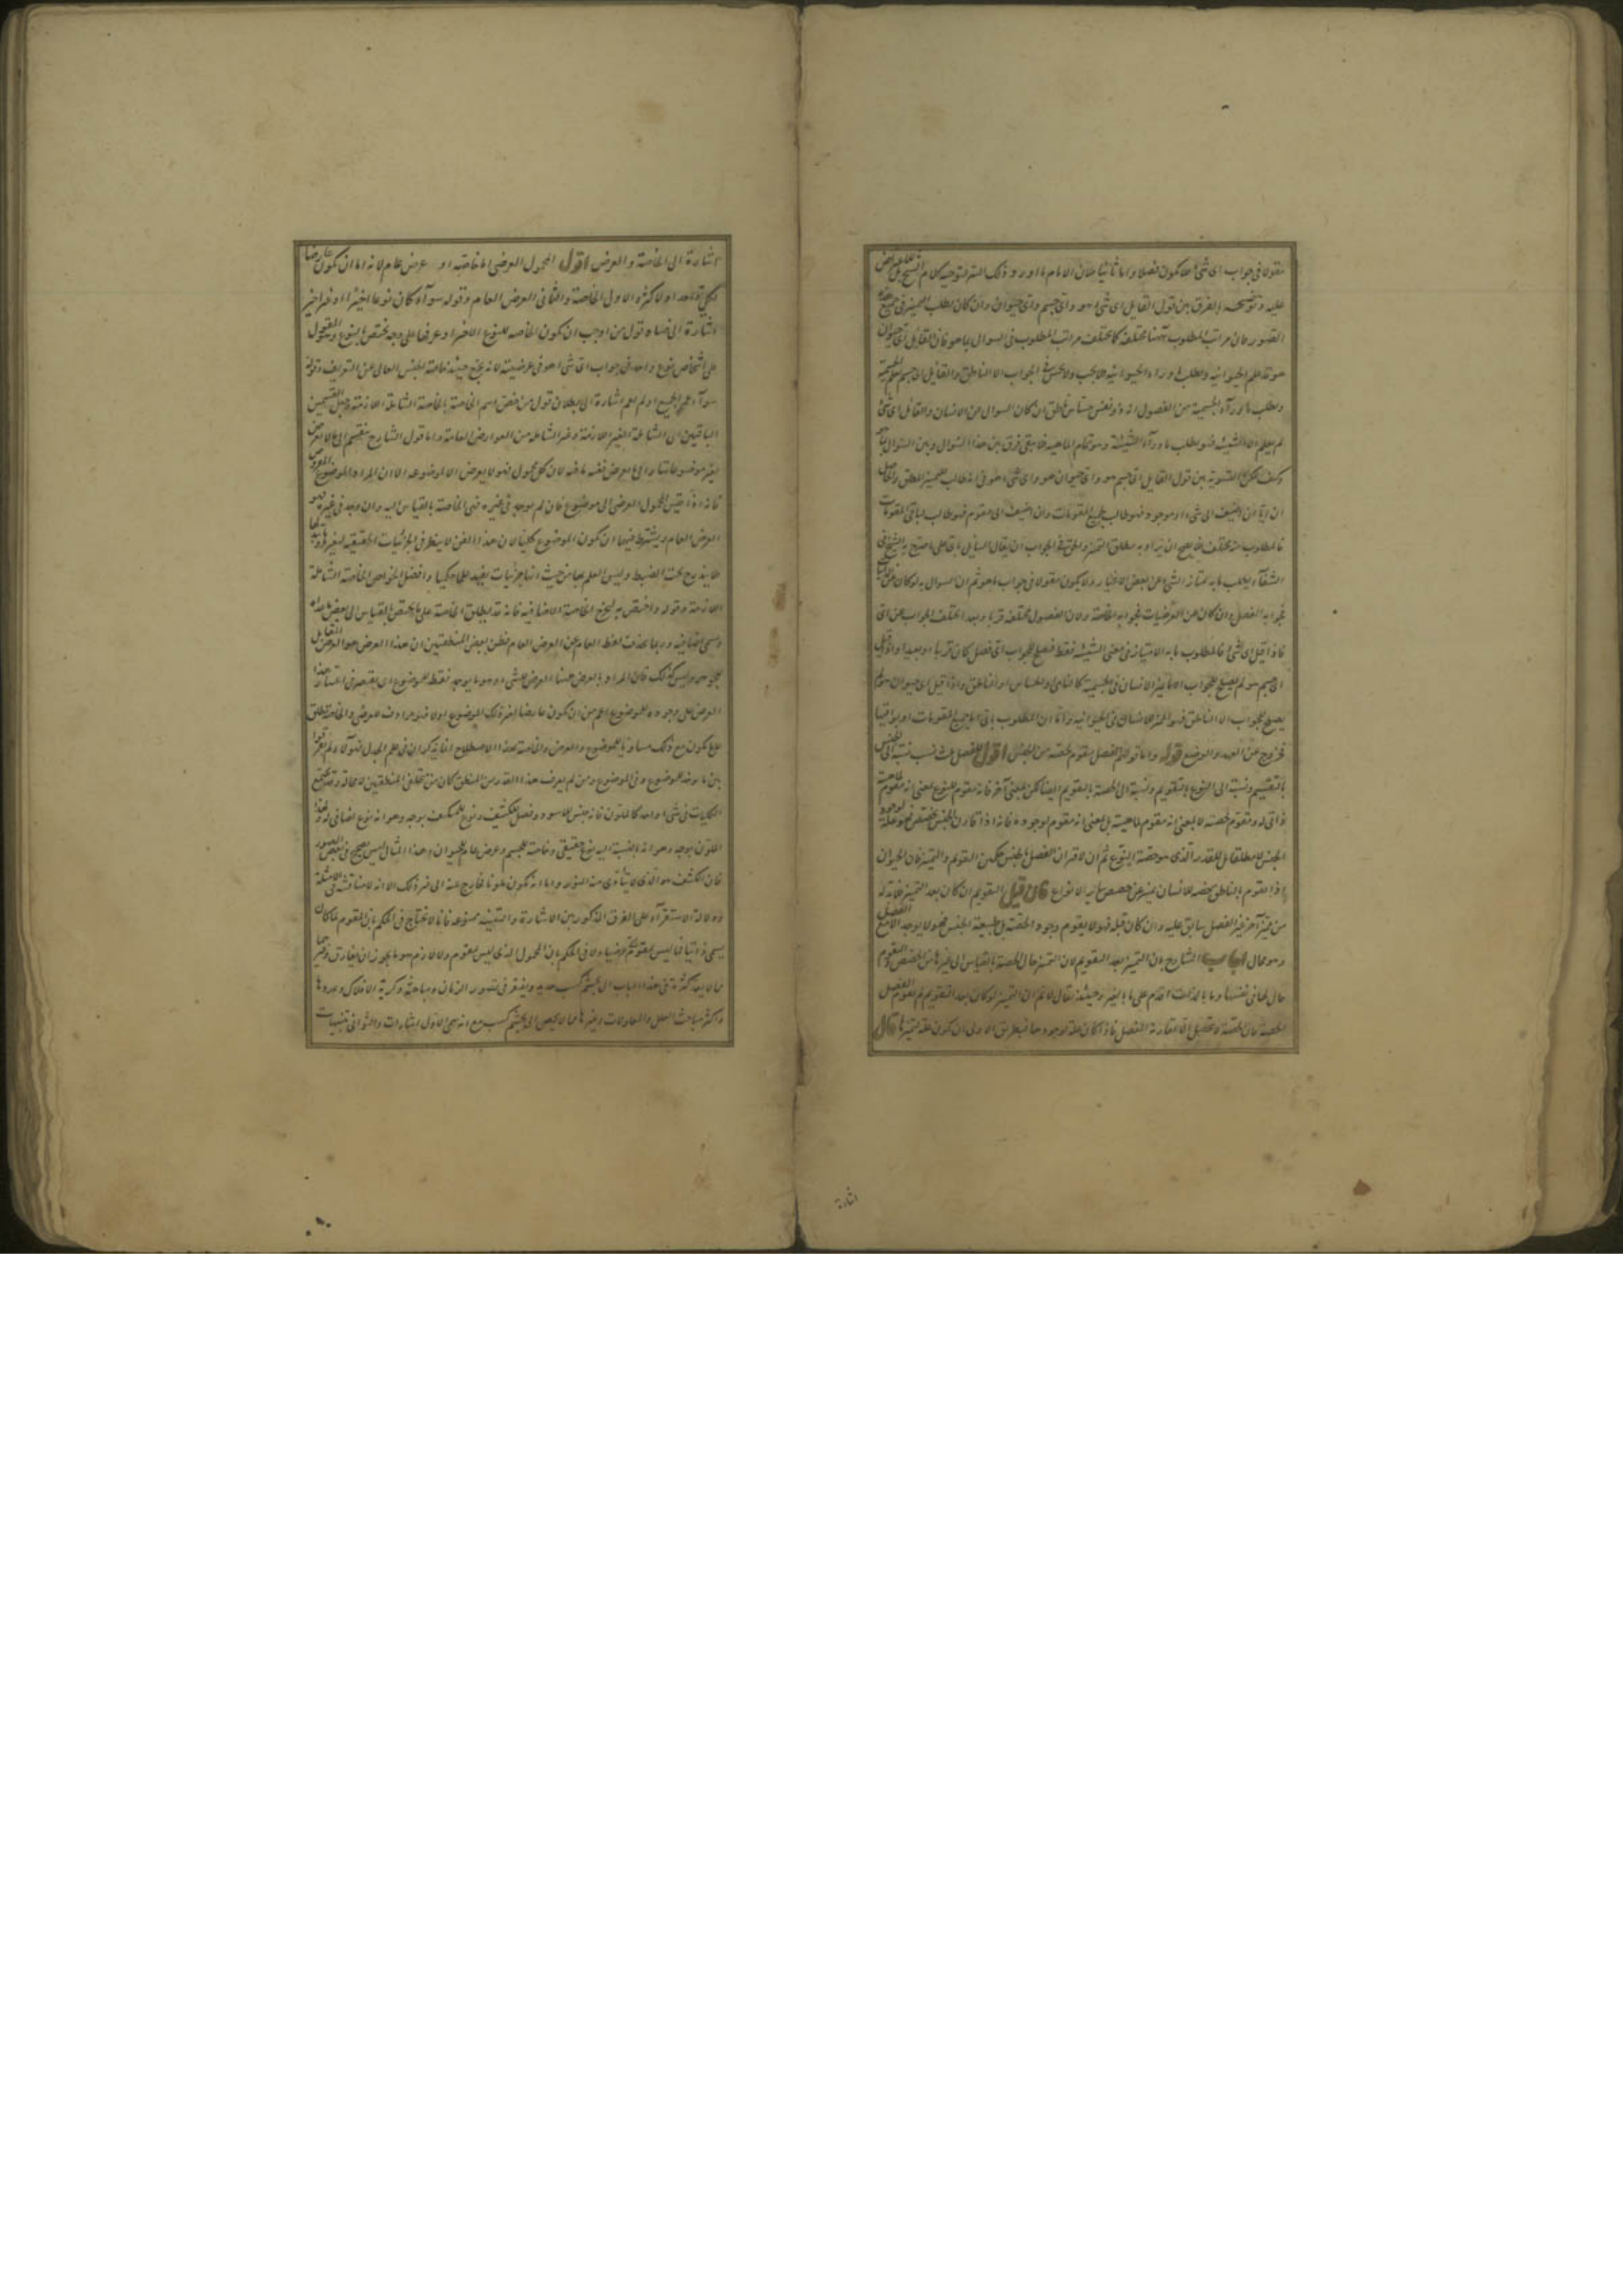 مقولا فى جواب اى شئ فلا يكون فصلا واما ثانيا فلان الامام ما اورد ذلك
عليه وتوضيحه الفرق بين قول القايل اى شئ هو واى جسم واى حيوان وان كان لطلب المميز فى جميع
الصور فان مراتب المطلوب بها مختلفة كما يختلف مراتب المطلوب فى السوال بما هو فان القايل اى حيوان
هو قد علم الحيوانية ويطلب ما وراء الحيوانية فلا يجب ولا يحسن فى الجواب الا الناطق والقايل اى جسم علم الجسمية
ويطلب ما ورآء الجسمية من الفصول انه ذو نفس حساس ناطق ان كان السوال عن الانسان والقايل اى شئ
لم يعلم الا الشيئية فهو يطلب ما ورآء الشيئية وهو تمام الماهية فلا يبقى فرق بين هذا السوال وبين السوال بما هو
وكيف يمكن التسوية بين قول القايل اى جسم هو واى حيوان هو واى شئ هو فى انه طالب للمميز المطلق والحاصل
ان ايا ان اضيف الى شئ او موجود فهو طالب لجميع المقومات وان اضيف الى مقوم فهو طالب لباقى المقومات
فالمطلوب منه مختلف فلا يصح ان يراد به مطلق التميز والحق فى الجواب ان يقال السايل
الشفآء يطلب ما به يمتاز الشئ عن بعض الاغيار ولا يكون مقولا فى جواب ما هو ثم ان السوال به لو كان عن
فجوابه الفصل وان كان عن العرضيات فجوابه الخاصة ولان الفصول مختلفة قربا وبعدا اختلف الجواب عن اى
فاذا قيل اى شئ فالمطلوب ما به الامتياز فى معنى الشيئية فقط فيصلح للجواب اى فصل كان قريبا او بعيدا واذا قيل
اى جسم هو لم يصلح للجواب الا ما يميز الانسان فى الجسمية كالنامى والحساس او الناطق واذا قيل اى حيوان هو لم
يصلح للجواب الا الناطق فهو المميز للانسان فى الحيوانية واما ان المطلوب باى اما جميع المقومات او بواقيها
فخروج عن العهد والوضع قوله واما قولهم الفصل مقوم لحصته من الجنس اقول للفصل ثلث نسب نسبة الى الجنس
بالتقسيم ونسبة الى النوع بالتقويم ونسبة الى الحصة بالتقويم ايضا لكن بمعنى آخر فانه مقوم للنوع بمعنى انه مقوم لماهيته
ذاتى له ومقوم لحصته لا بمعنى انه مقوم لماهيته بل بمعنى انه مقوم لوجوده فانه اذا قارن الجنس تخصص فهو علة لوجود
الجنس لا مطلقا بل للقدر الذى هو حصة النوع ثم ان لاقتران الفصل بالجنس حكمين التقويم والتميز فان الحيوان
اذا تقوم بالناطق حصة للانسان تميز عن حصص ساير الانواع فان قيل التقويم ان كان بعد التميز فلا بد له
من مميز آخر غير الفصل سابق عليه وان كان قبله فهو لا يقوم وجود الحصة بل طبيعة الجنس فهو لا يوجد الا مع الفصل
وهو محال اجاب الشارح بان التميز بعد التقويم لان التميز حال للحصة بالقياس الى غيرها من الحصص والتقوم
حال لها فى نفسها وما بالذات اقدم على ما بالغير وحينئذ نقال لا نم ان التميز لو كان بعد التقويم لم يقوم الفصل
الحصة فان الحصة لا تحصل الا بمقارنة الفصل فاذا كان علة لوجودها فبطريق الاولى ان يكون علة لتميزها قال
اشارة
اشارة الى الخاصة والعرض اقول المحمول العرضى اما خاصة او عرض عام لانه اما ان يكون عارضا
لكلى واحد او لاكثر والاول الخاصة والثانى العرض العام وقوله سوآء كان نوعا اخيرا او غير اخير
اشارة الى فساد قول من اوجب ان يكون الخاصة للنوع الاخير او عرفها على وجه يختص بالنوع وهو المقول
على اشخاص نوع واحد فى جواب اى شئ هو فى عرضيته لانه يخرج حينئذ خاصة الجنس العالى عن التعريف وقوله
سوآء عم الجميع او لم يعم اشارة الى بطلان قول من خص اسم الخاصة بالخاصة الشاملة اللازمة وجعل القسمين
الباقيين اى الشاملة الغير اللازمة وغير الشاملة من العوارض العامة واما قول الشارح ينقسم الى ما لا يعرض
لغير موضوعاتها والى ما يعرض ففيه ما فيه لان كل محمول فهو لا يعرض الا لموضوعه الا ان المراد بالموضوع المعروض
فانه اذا قيس المحمول العرضى الى موضوع فان لم يوجد فى غيره فهى الخاصة بالقياس اليه وان وجد فى غيره فهو
العرض العام ويشترط فيهما ان يكون الموضوع كليا لان هذا الفن لا ينظر فى الجزئيات الحقيقية لتغيرها
فلا يندرج تحت الضبط وليس العلم بها من حيث انها جزئيات يفيد كمالا حكميا وافضل الخواص الخاصة الشاملة
اللازمة وقوله واختص به ليخرج الخاصة الاضافية فانه قد يطلق الخاصة على ما يختص بالقياس الى بعض ما عداه
ويسمى اضافية وربما يحذف لفظ العام عن العرض العام فظن بعض المنطقيين ان هذا العرض هو العرض المقابل
للجوهر وليس كذلك فان المراد بالعرض ههنا العرض للشئ وهو ما يوجد فقط للموضوع اى يقتصر فى اعتبار هذا
العرض على وجوده للموضوع اعم من ان يكون عارضا لغير ذلك الموضوع او لا فهو مرادف للعرضى والخاصة يطلق
على يكون مع ذلك مساويا للموضوع والعرض والخاصة بهذا الاصطلاح انما يذكران فى علم الجدل فهولآء لم يفرقوا
بين ما يوجد للموضوع وفى الموضوع ومن لم يعرف هذا القدر من المنطق كان من متخلفى المنطقيين لا محالة وقد يجتمع
الكليات فى شئ واحد كالملون فانه جنس للاسود وفصل للكثيف ونوع للمتكيف بوجه وهو انه نوع اضافى له
الملون بوجه وهو انه بالنسبة اليه نوع حقيقى وخاصة للجسم وعرض عام للحيوان وهذا المثال ليس بصحيح فى بعض الصور
فان الكثيف هو الذى لا يتأدى منه النور واما انه يكون ملونا فخارج عنه الى غير ذلك الا انه لا مناقشة فى الامثلة
ودلالة الاستقرآء على الفرق المذكور بين الاشارة والتنبيه ممنوعة فانا لا نحتاج فى الحكم بان المقوم لما كان
يسمى ذاتيا فما ليس بمقوم عرضيا ولا فى الحكم بان المحمول الذى ليس بمقوم ولا لازم هو ما يجوز ان يفارق وغيرهما
مما لا يعد كثرة فى هذا الباب الى تجشم كسب جديد ونفتقر فى تصور الزمان ومباحثه وكرية الافلاك وعددها
واكثر مباحث العلل والمعلولات وغيرها مما لا يحصى الى تجشم كسب مع انه سمى الاول اشارات والثوانى تنبيهات